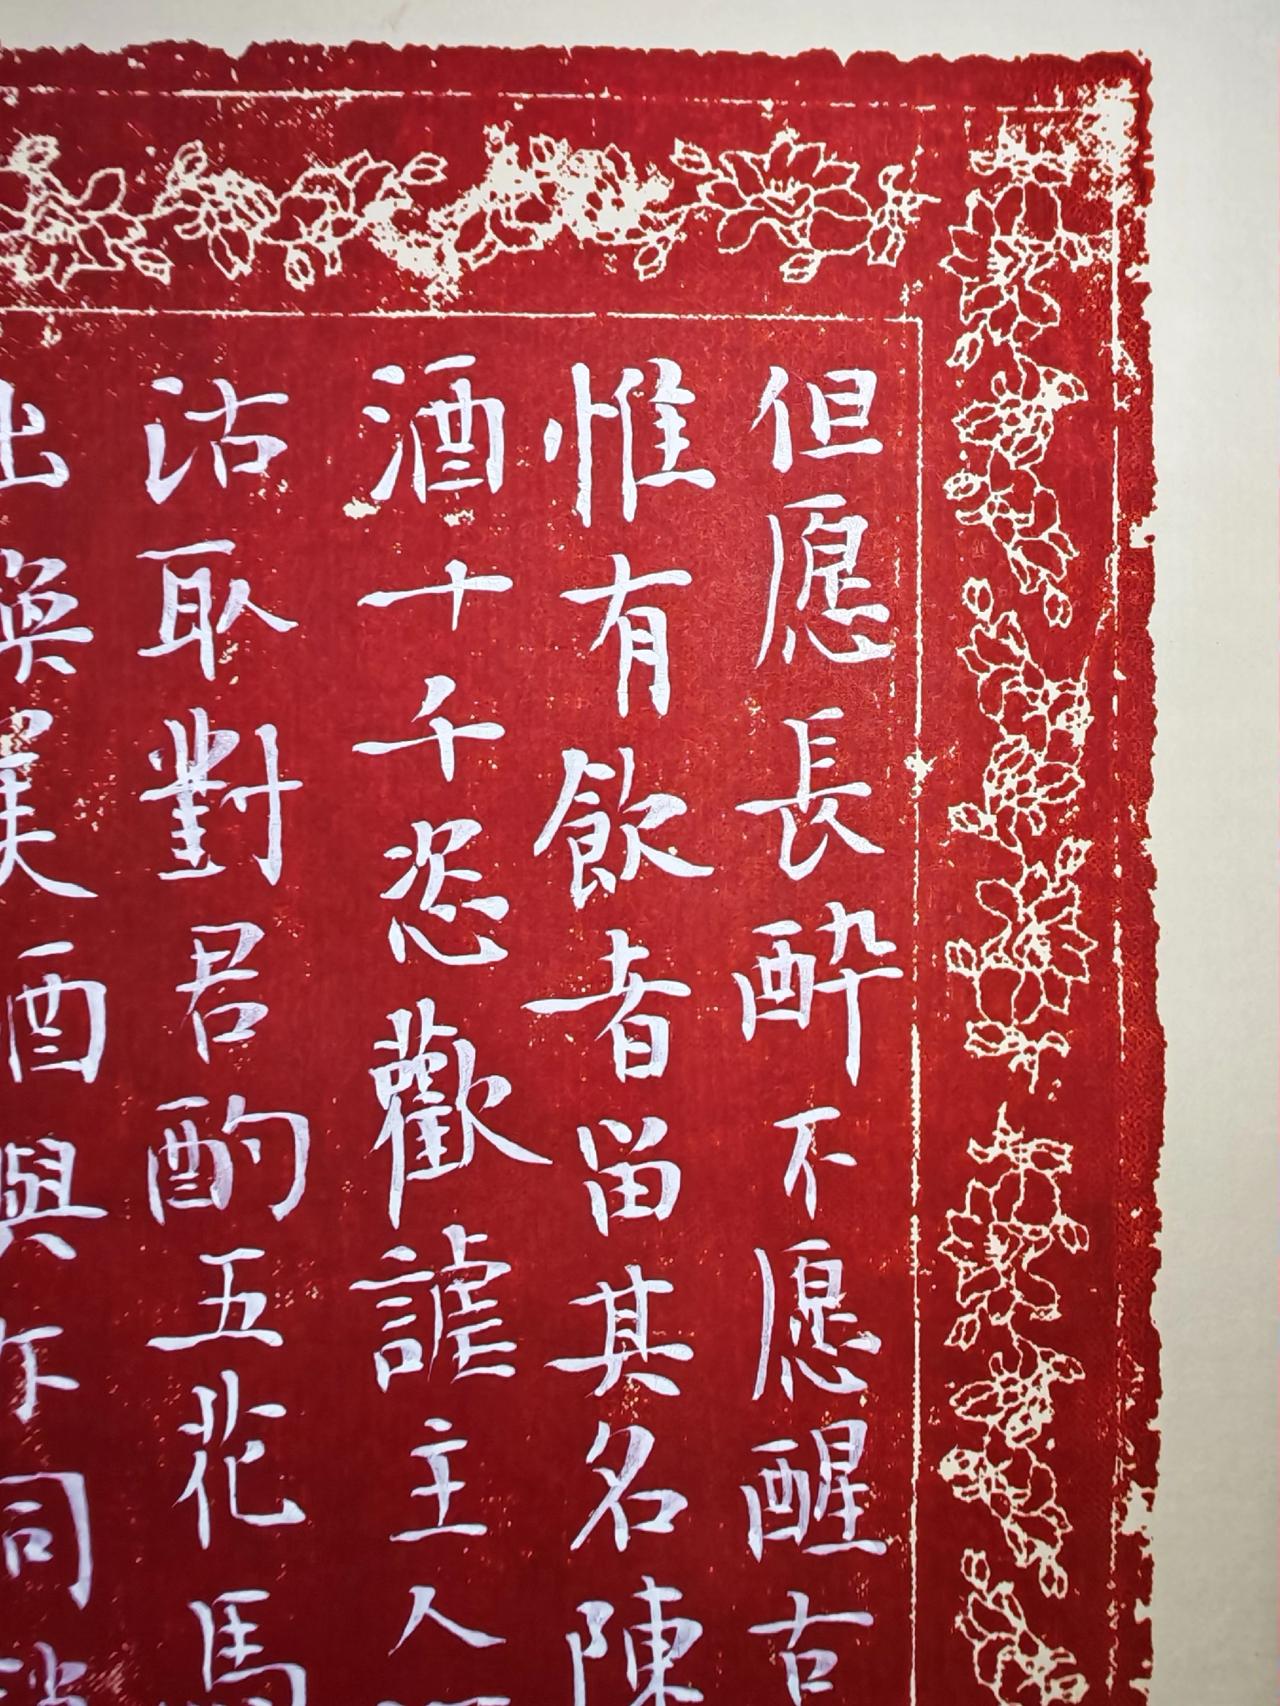 但愿長醉不愿醒古
惟有飲者留其名陳
酒十千恣歡謔主人
沽取對君酌五花馬
出換美酒與尔同